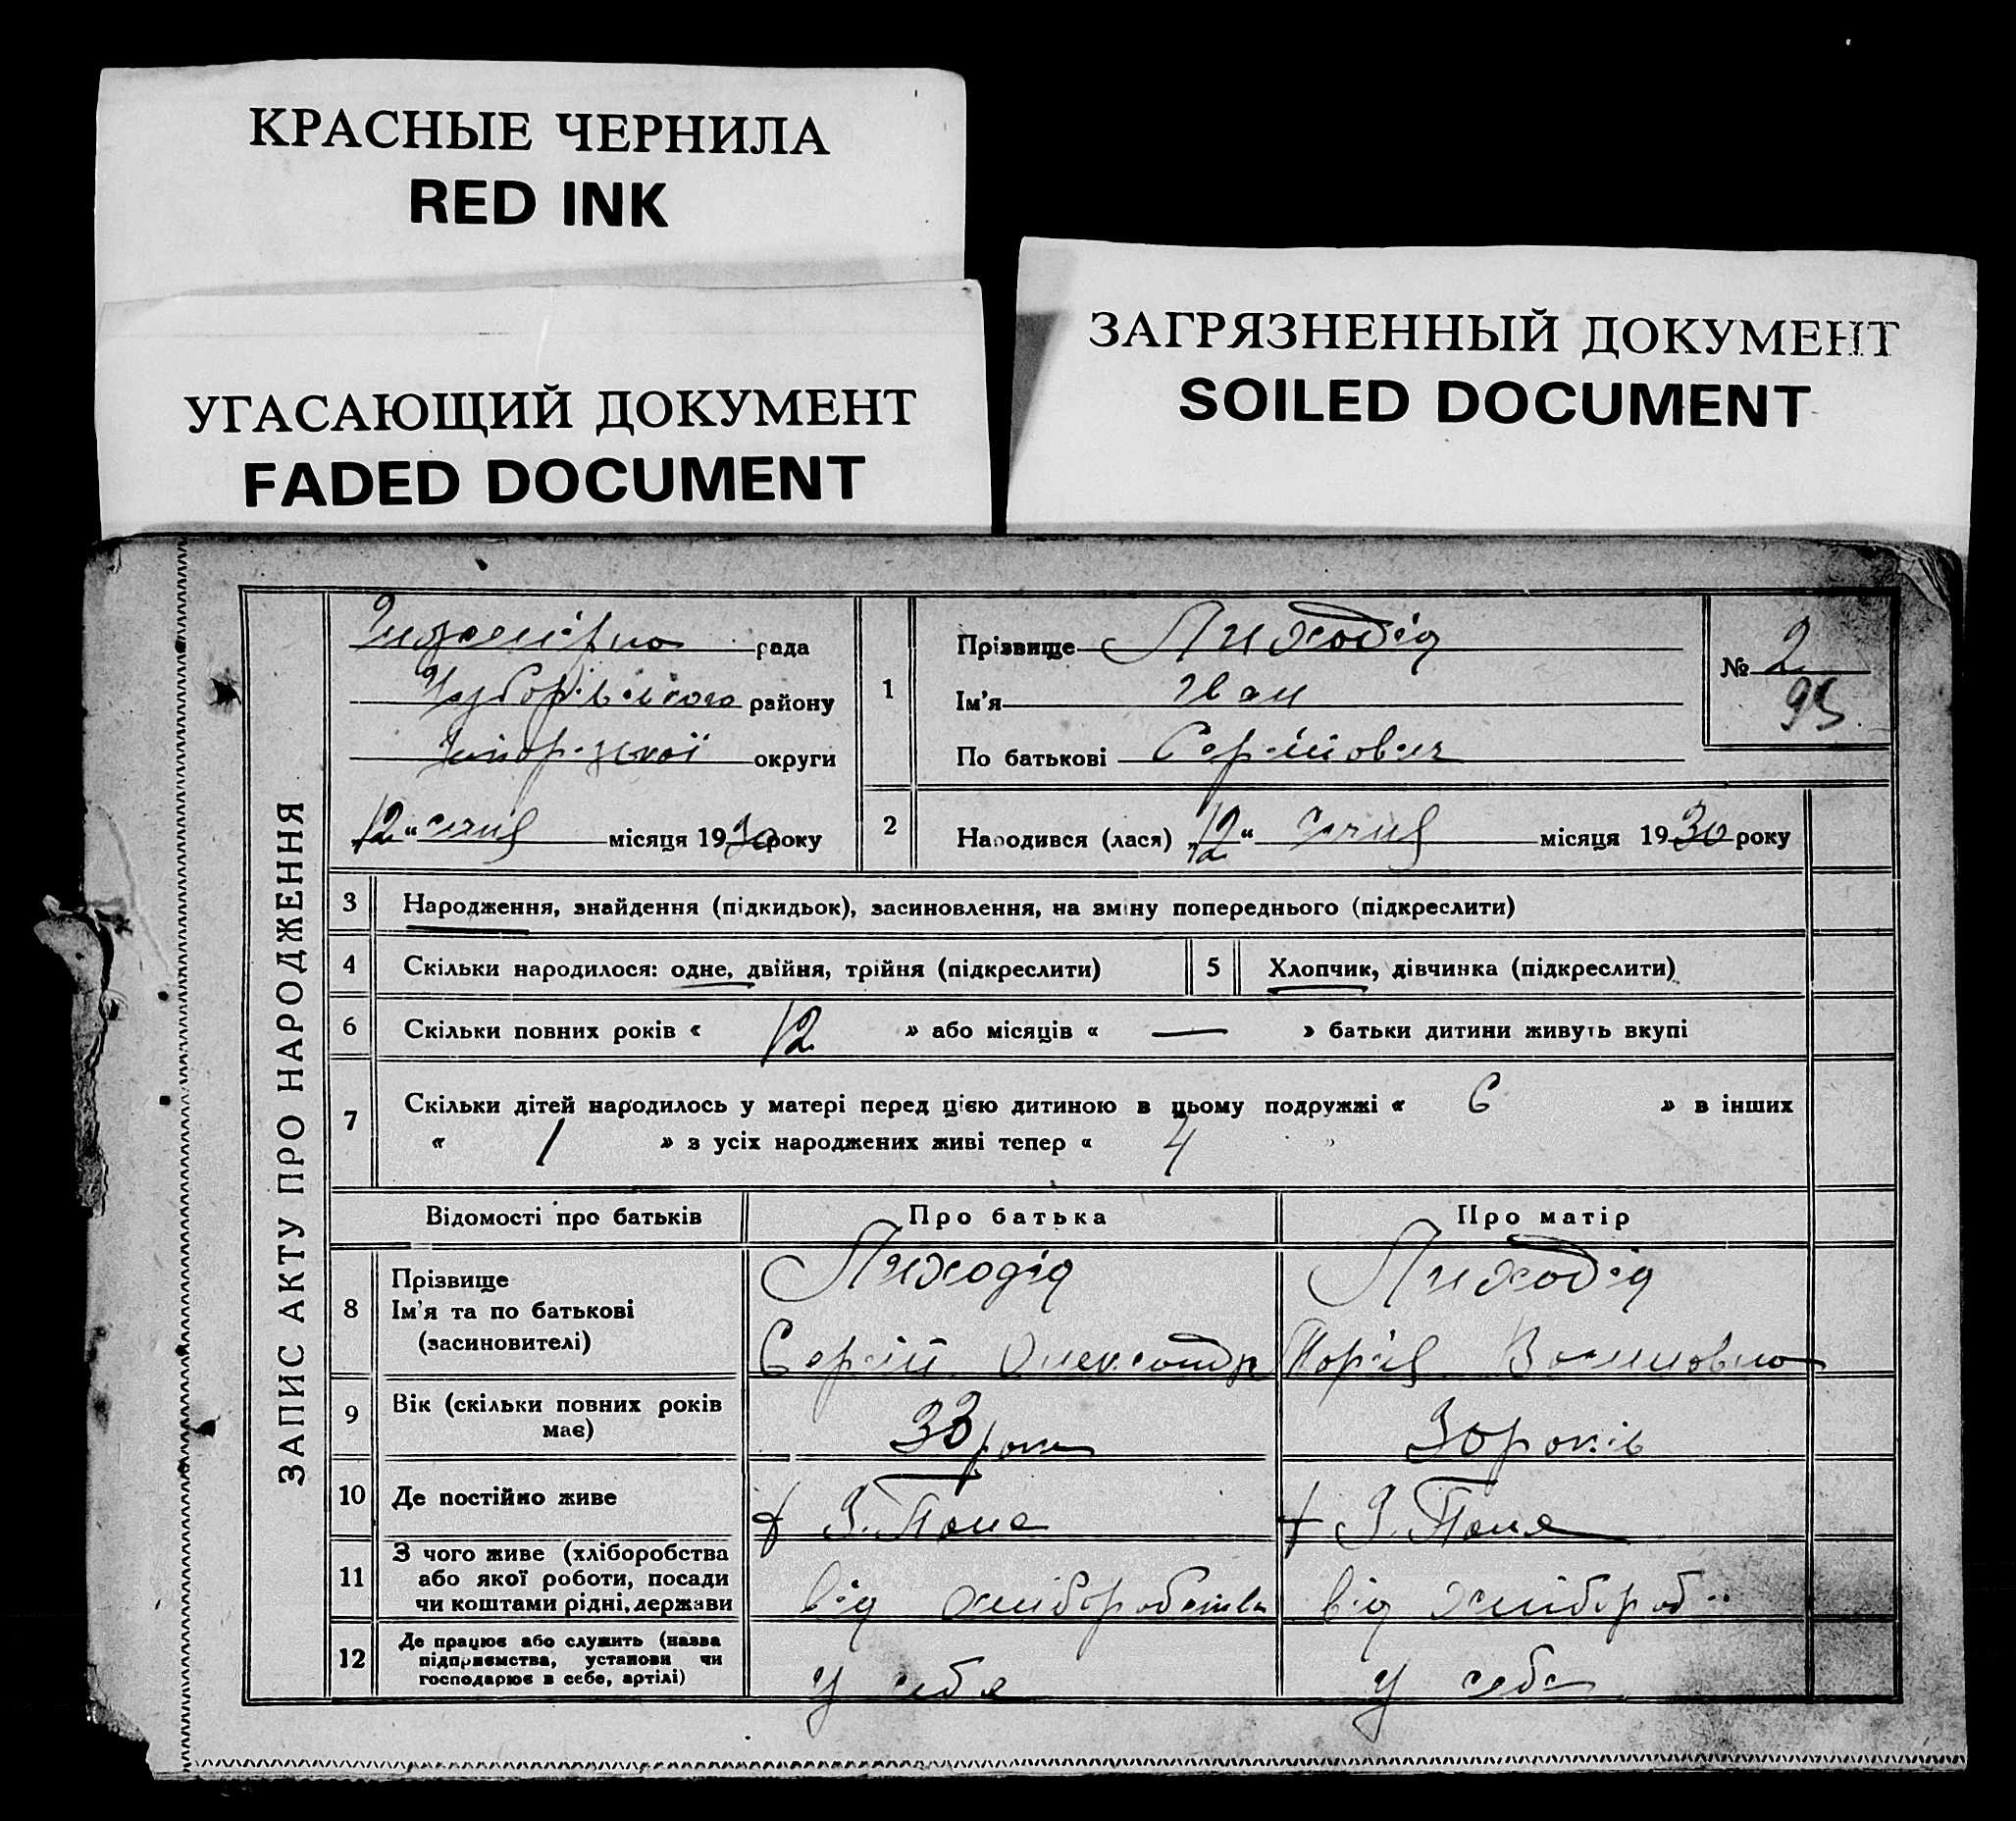 КРАСНЫЕ ЧЕРНИЛА
RED INK
УГАСАЮЩИЙ ДОКУМЕНТ
FADED DOCUMENT
ЗАГРЯЗНЕННЫЙ ДОКУМЕНТ
SOILED DOCUMENT
ЗАПИС АКТУ ПРО НАРОДЖЕННЯ
рада
району
округи
12 " січня місяця 1930 року
1
Прізвище Лиходід
Ім'я Іван
По батькові Сергійович
№ 2
95
2
Народився (лася) 12 " січня місяця 1930 року
3 Народження, знайдення (підкидьок), засиновлення, на зміну попереднього (підкреслити)
4 Скільки народилося: одне, двійня, трійня (підкреслити) 5 Хлопчик, дівчинка (підкреслити)
6 Скільки повних років « 12 » або місяців « — » батьки дитини живуть вкупі
7 Скільки дітей народилось у матері перед цією дитиною в цьому подружжі « 6 » в інших
« 1 » з усіх народжених живі тепер « 4 »
Відомості про батьків Про батька Про матір
8 Прізвище Лиходід Лиходід
Ім'я та по батькові
(засиновителі) Сергій Олександр
9 Вік (скільки повних років має) 33 роки 30 років
10 Де постійно живе
11 З чого живе (хліборобства або якої роботи, посади чи коштами рідні, держави від хліборобства від хлібороб
12 Де працює або служить (назва підприємства, установи чи господарює в себе, артілі) У себе У себе